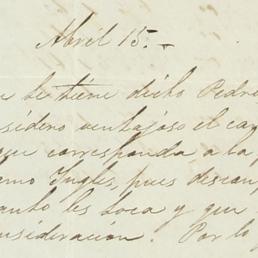 Abril 15.
se tiene dicho Pedro
considero ventajoso el
que corresponda a la
como Inglés, pues
tanto les toca y que
consideracion. Por lo